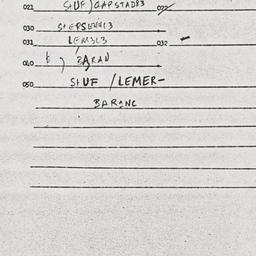 021 StUF) GAPSTAD83 022
030 StEPSENNL3
031 LEM3L3 032 -
040 & ) BARAN
050 StUF / LEMER-
BARENC